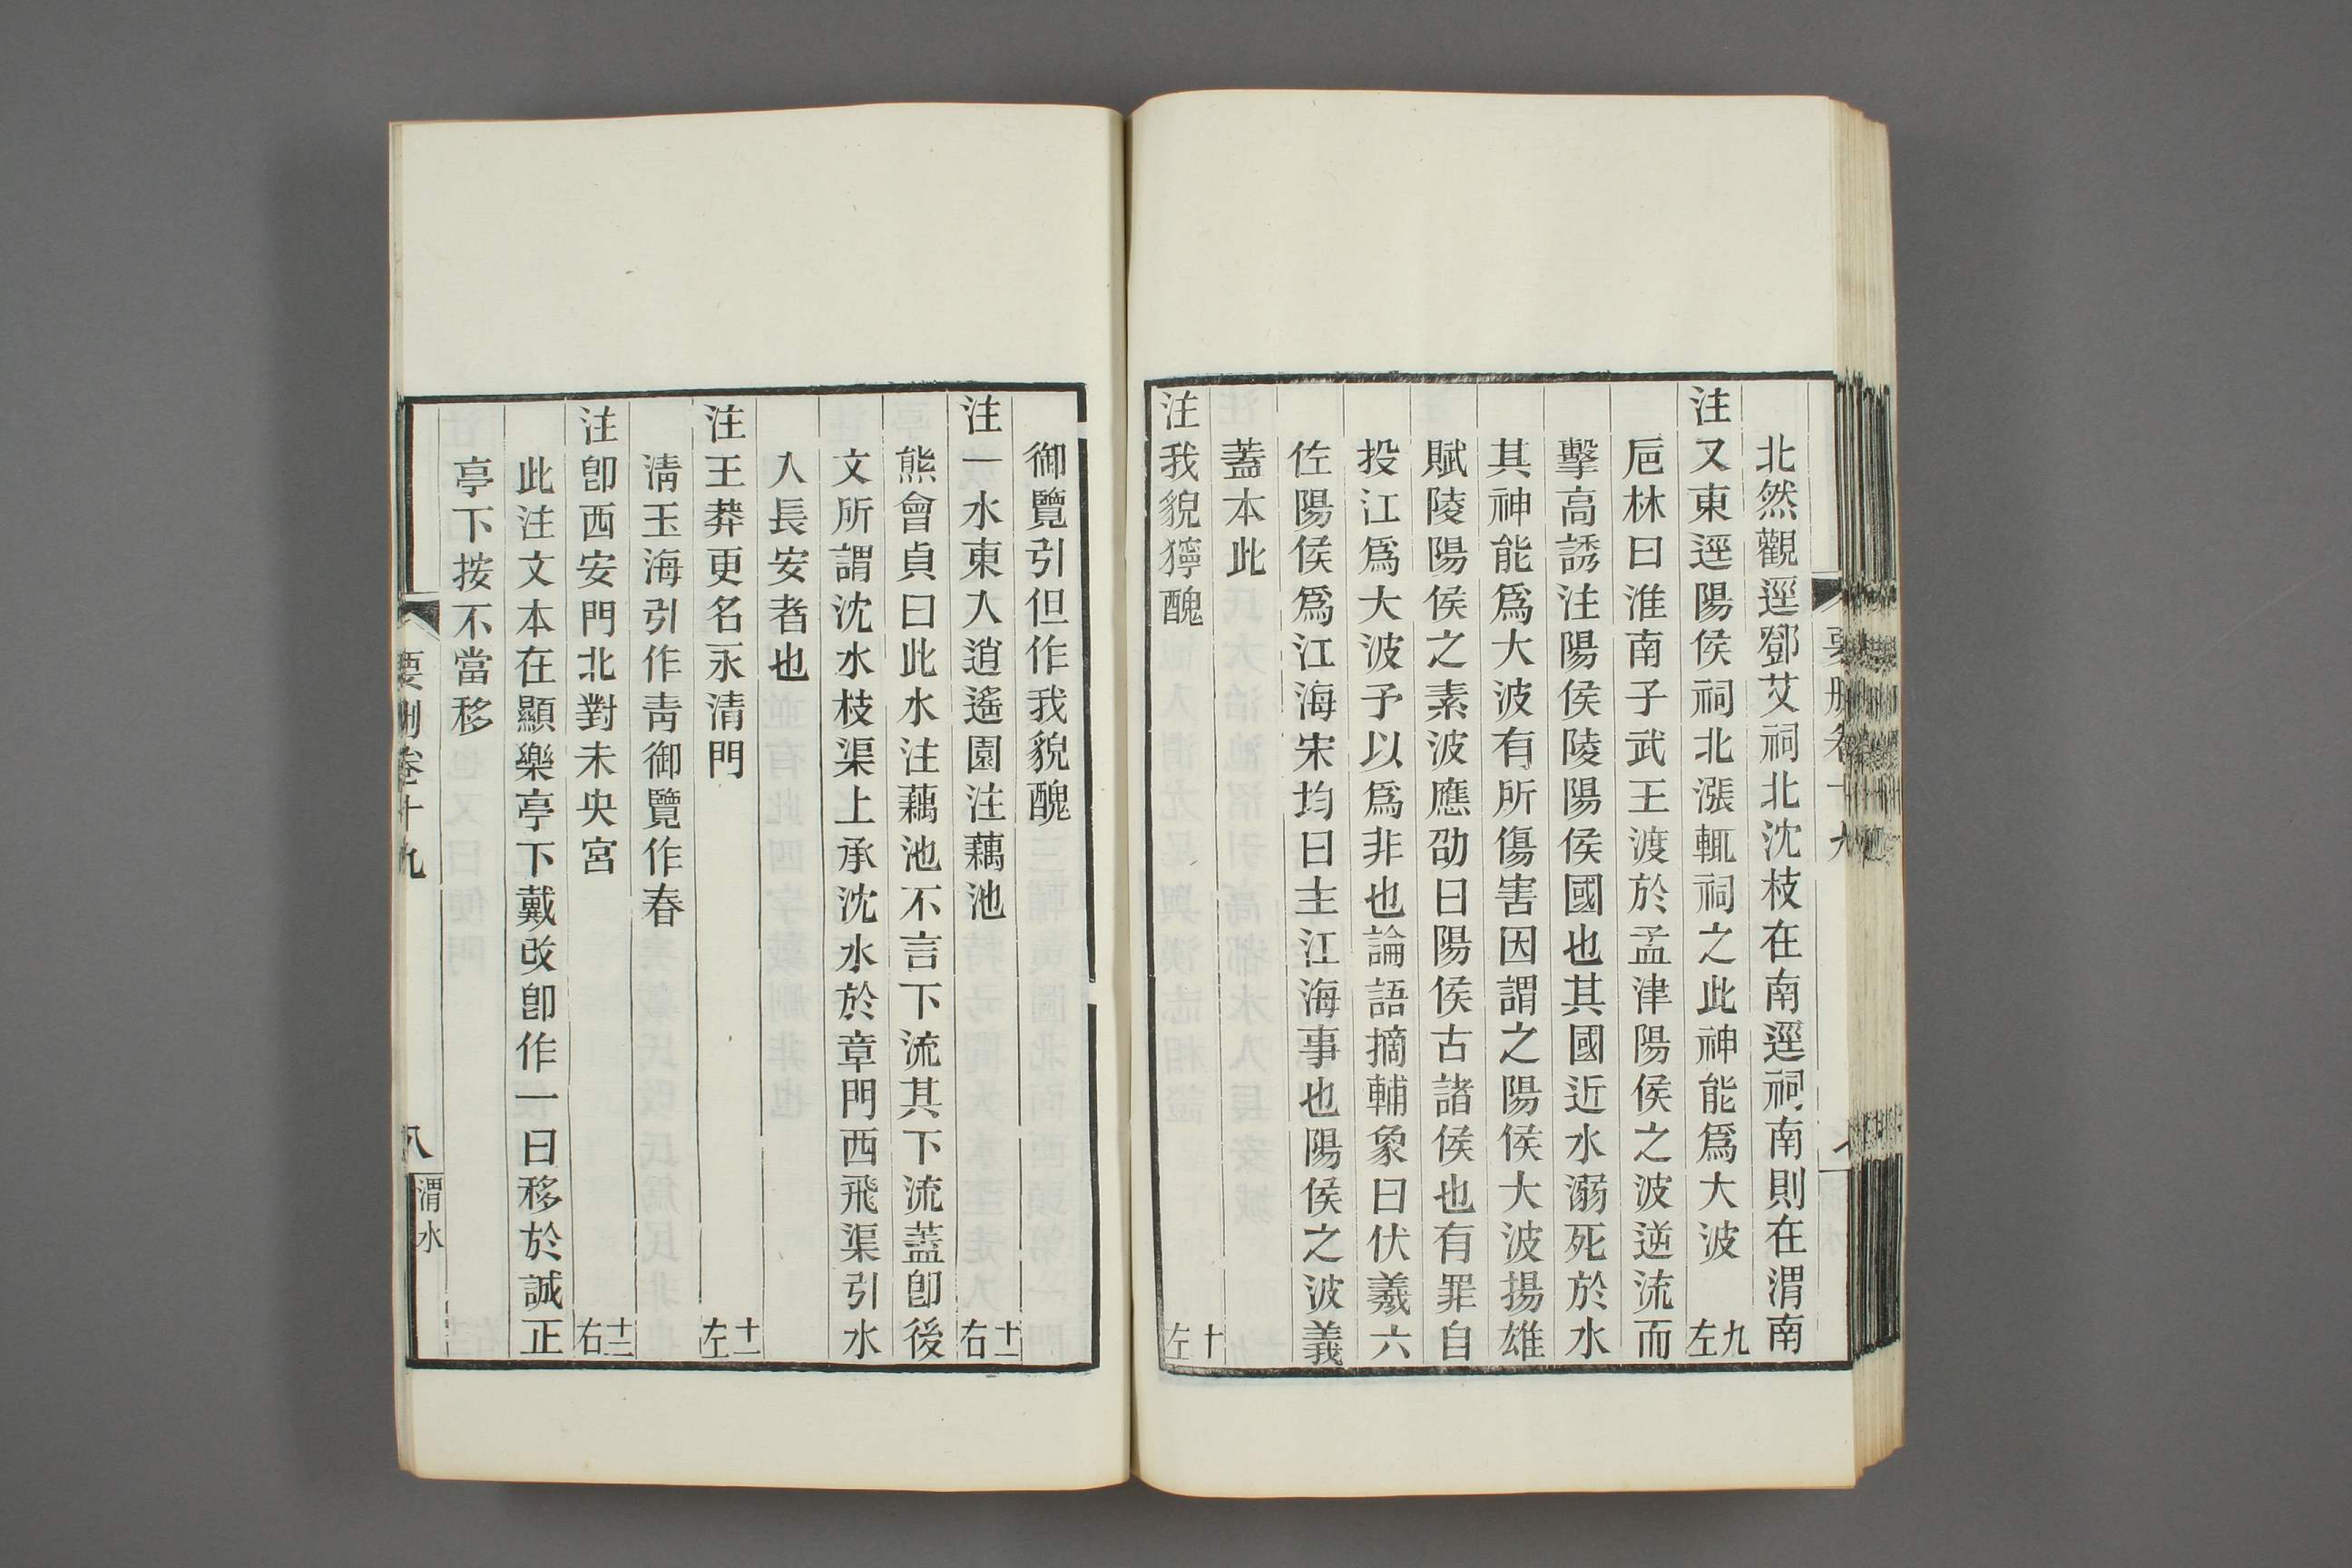 北然觀逕鄧艾祠北沈枝在南逕祠南則在渭南
注又東逕陽侯祠北漲輒祠之此神能爲大波 九左
巵林曰淮南子武王渡於孟津陽侯之波逆流而
擊高誘注陽侯陵陽侯國也其國近水溺死於水
其神能爲大波有所傷害因謂之陽侯大波揚雄
賦陵陽侯之素波應劭曰陽侯古諸侯也有罪自
投江爲大波予以爲非也論語摘輔象曰伏羲六
佐陽侯爲江海宋均曰主江海事也陽侯之波義
蓋本此
注我貌獰醜 十左
御覽引但作我貌醜
注一水東入逍遙園注藕池 十一右
熊會貞曰此水注藕池不言下流其下流蓋卽後
文所謂沈水枝渠上承沈水於章門西飛渠引水
入長安者也
注王莽更名永清門 十一左
清玉海引作靑御覽作春
注卽西安門北對未央宮 十二右
此注文本在顯樂亭下戴改卽作一曰移於誠正
亭下按不當移
要刪卷十九
八
渭水